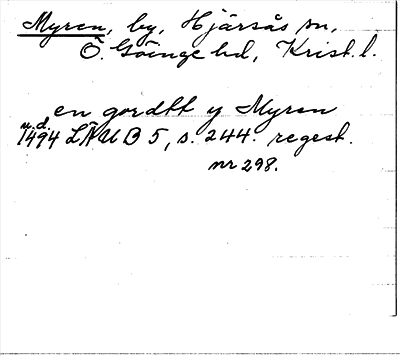 Myren, by, Hjärsås sn,
Ö. Göinge hd, Krist. l.
en gordtt y Myren
u.d.
1494 LÄUB 5, s. 244. regest.
nr 298.